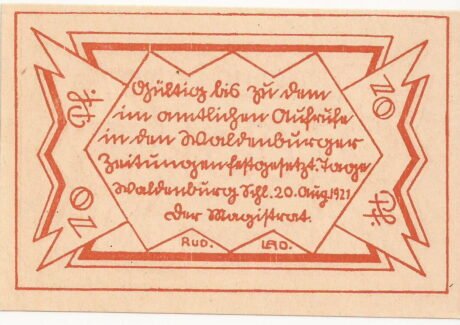 Gültig bis zu dem
im amtlichen Aufrufe
in den Waldenburger
Zeitungen festgesetzt. Tage
Waldenburg Schl. 20. Aug. 1921
Der Magistrat.
RUD.
10
Pf.
10
Pf.